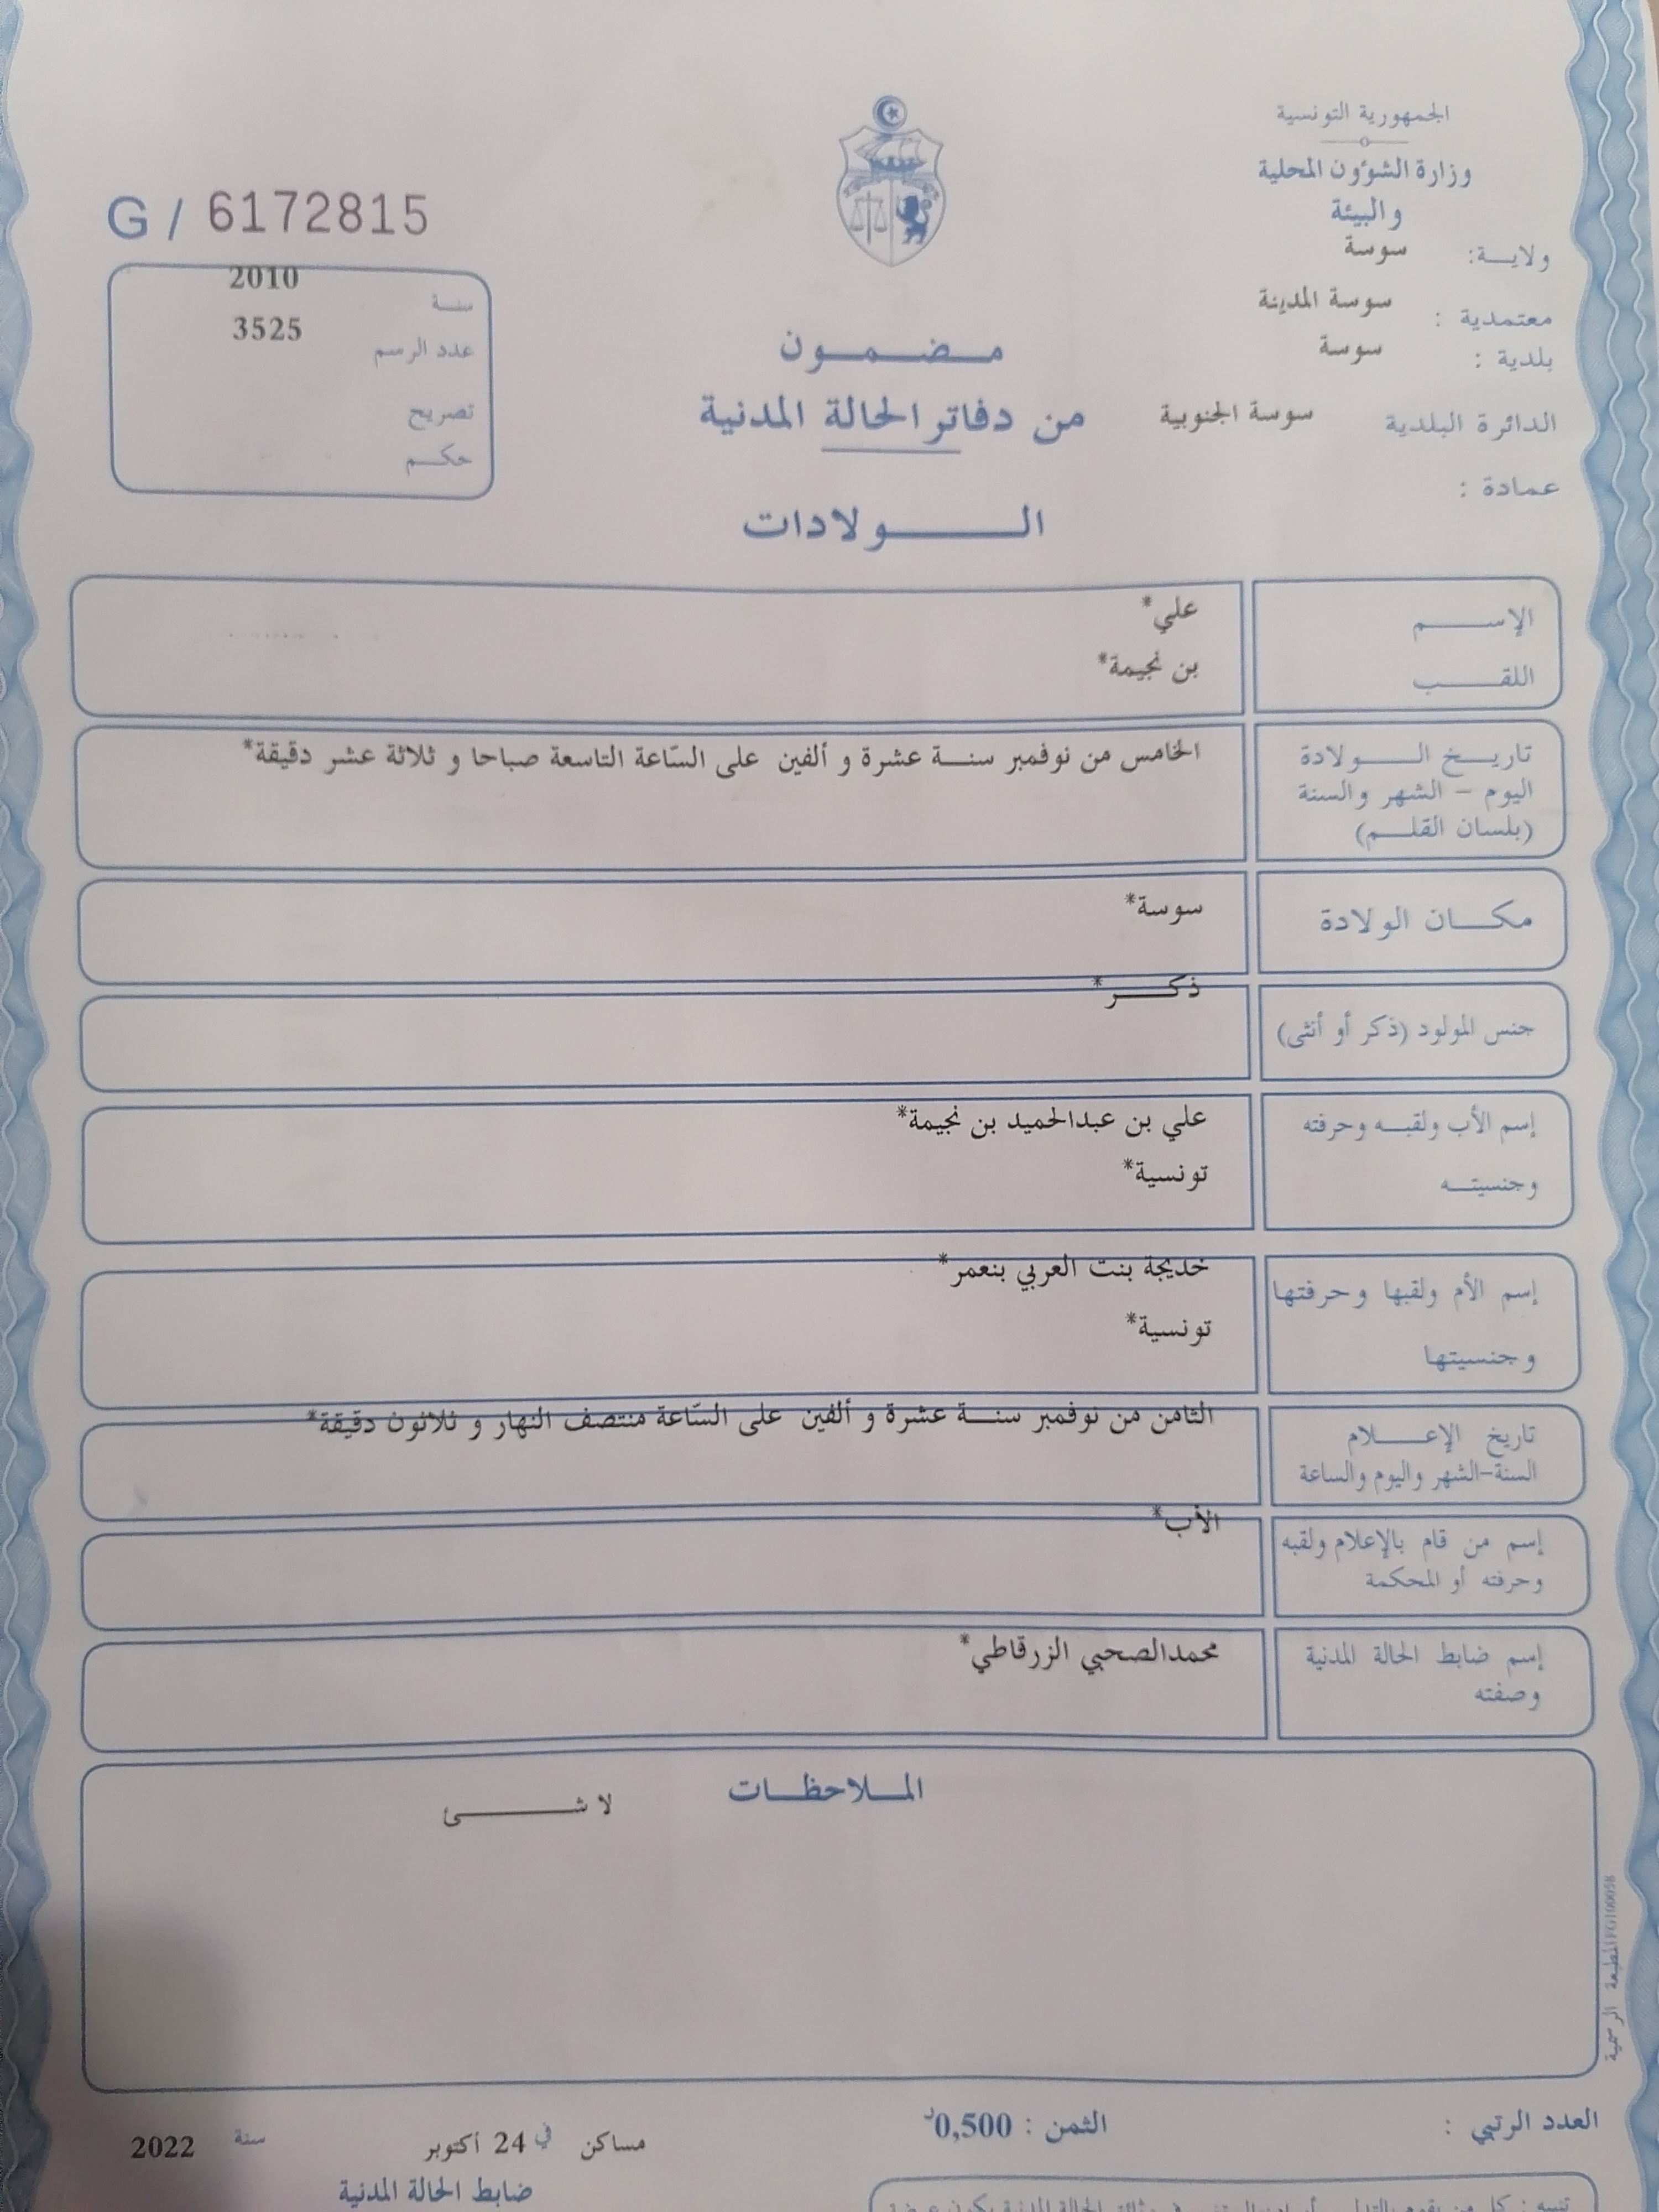 الجمهورية التونسية
وزارة الشؤون المحلية
والبيئة
ولايـــة: سوسة
معتمدية : سوسة المدينة
بلدية : سوسة
الدائرة البلدية سوسة الجنوبية
عمادة :
G / 6172815
سنـــة 2010
عدد الرسم 3525
تصريح
حكــم
مـــضـــمـــون
من دفاتر الحالة المدنية
الـــــــولادات
الإســـــم علي*
اللقـــــب بن نجيمة*
تاريـــخ الـــــولادة الخامس من نوفمبر سنـــة عشرة و ألفين على السّاعة التاسعة صباحا و ثلاثة عشر دقيقة*
اليوم – الشهر والسنة
(بلسان القلـــم)
مكـــان الولادة سوسة*
جنس المولود (ذكر أو أنثى) ذكـــــر*
إسم الأب ولقبـــه وحرفته علي بن عبدالحميد بن نجيمة*
وجنسيتـــه تونسية*
إسم الأم ولقبها وحرفتها خديجة بنت العربي بنعمر*
وجنسيتها تونسية*
تاريخ الإعـــــلام الثامن من نوفمبر سنـــة عشرة و ألفين على السّاعة منتصف النهار و ثلاثون دقيقة*
السنة-الشهر واليوم والساعة
إسم من قام بالإعلام ولقبه الأب*
وحرفته أو المحكمة
إسم ضابط الحالة المدنية محمدالصحبي الزرقاطي*
وصفته
المـــلاحظـــات
لا شـــــــئ
المطبعة الرسمية
العدد الرتبي :
الثمن : 0,500د
مساكن في 24 أكتوبر سنة 2022
ضابط الحالة المدنية